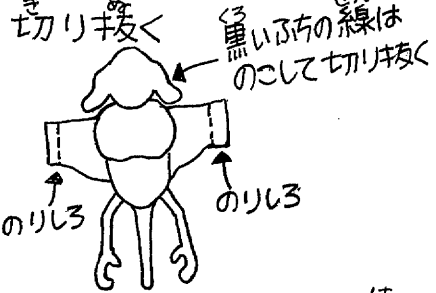 切り抜く
黒いふちの線は
のこして切り抜く
のりしろ
のりしろ